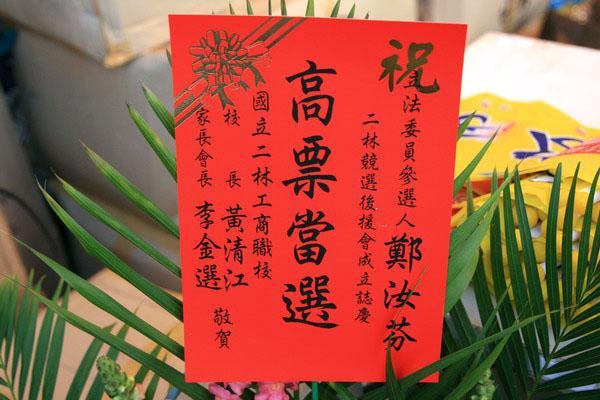 祝
立法委員參選人 鄭汝芬
二林競選後援會成立誌慶
高票當選
國立二林工商職校
校長 黃清江
家長會長 李金選 敬賀